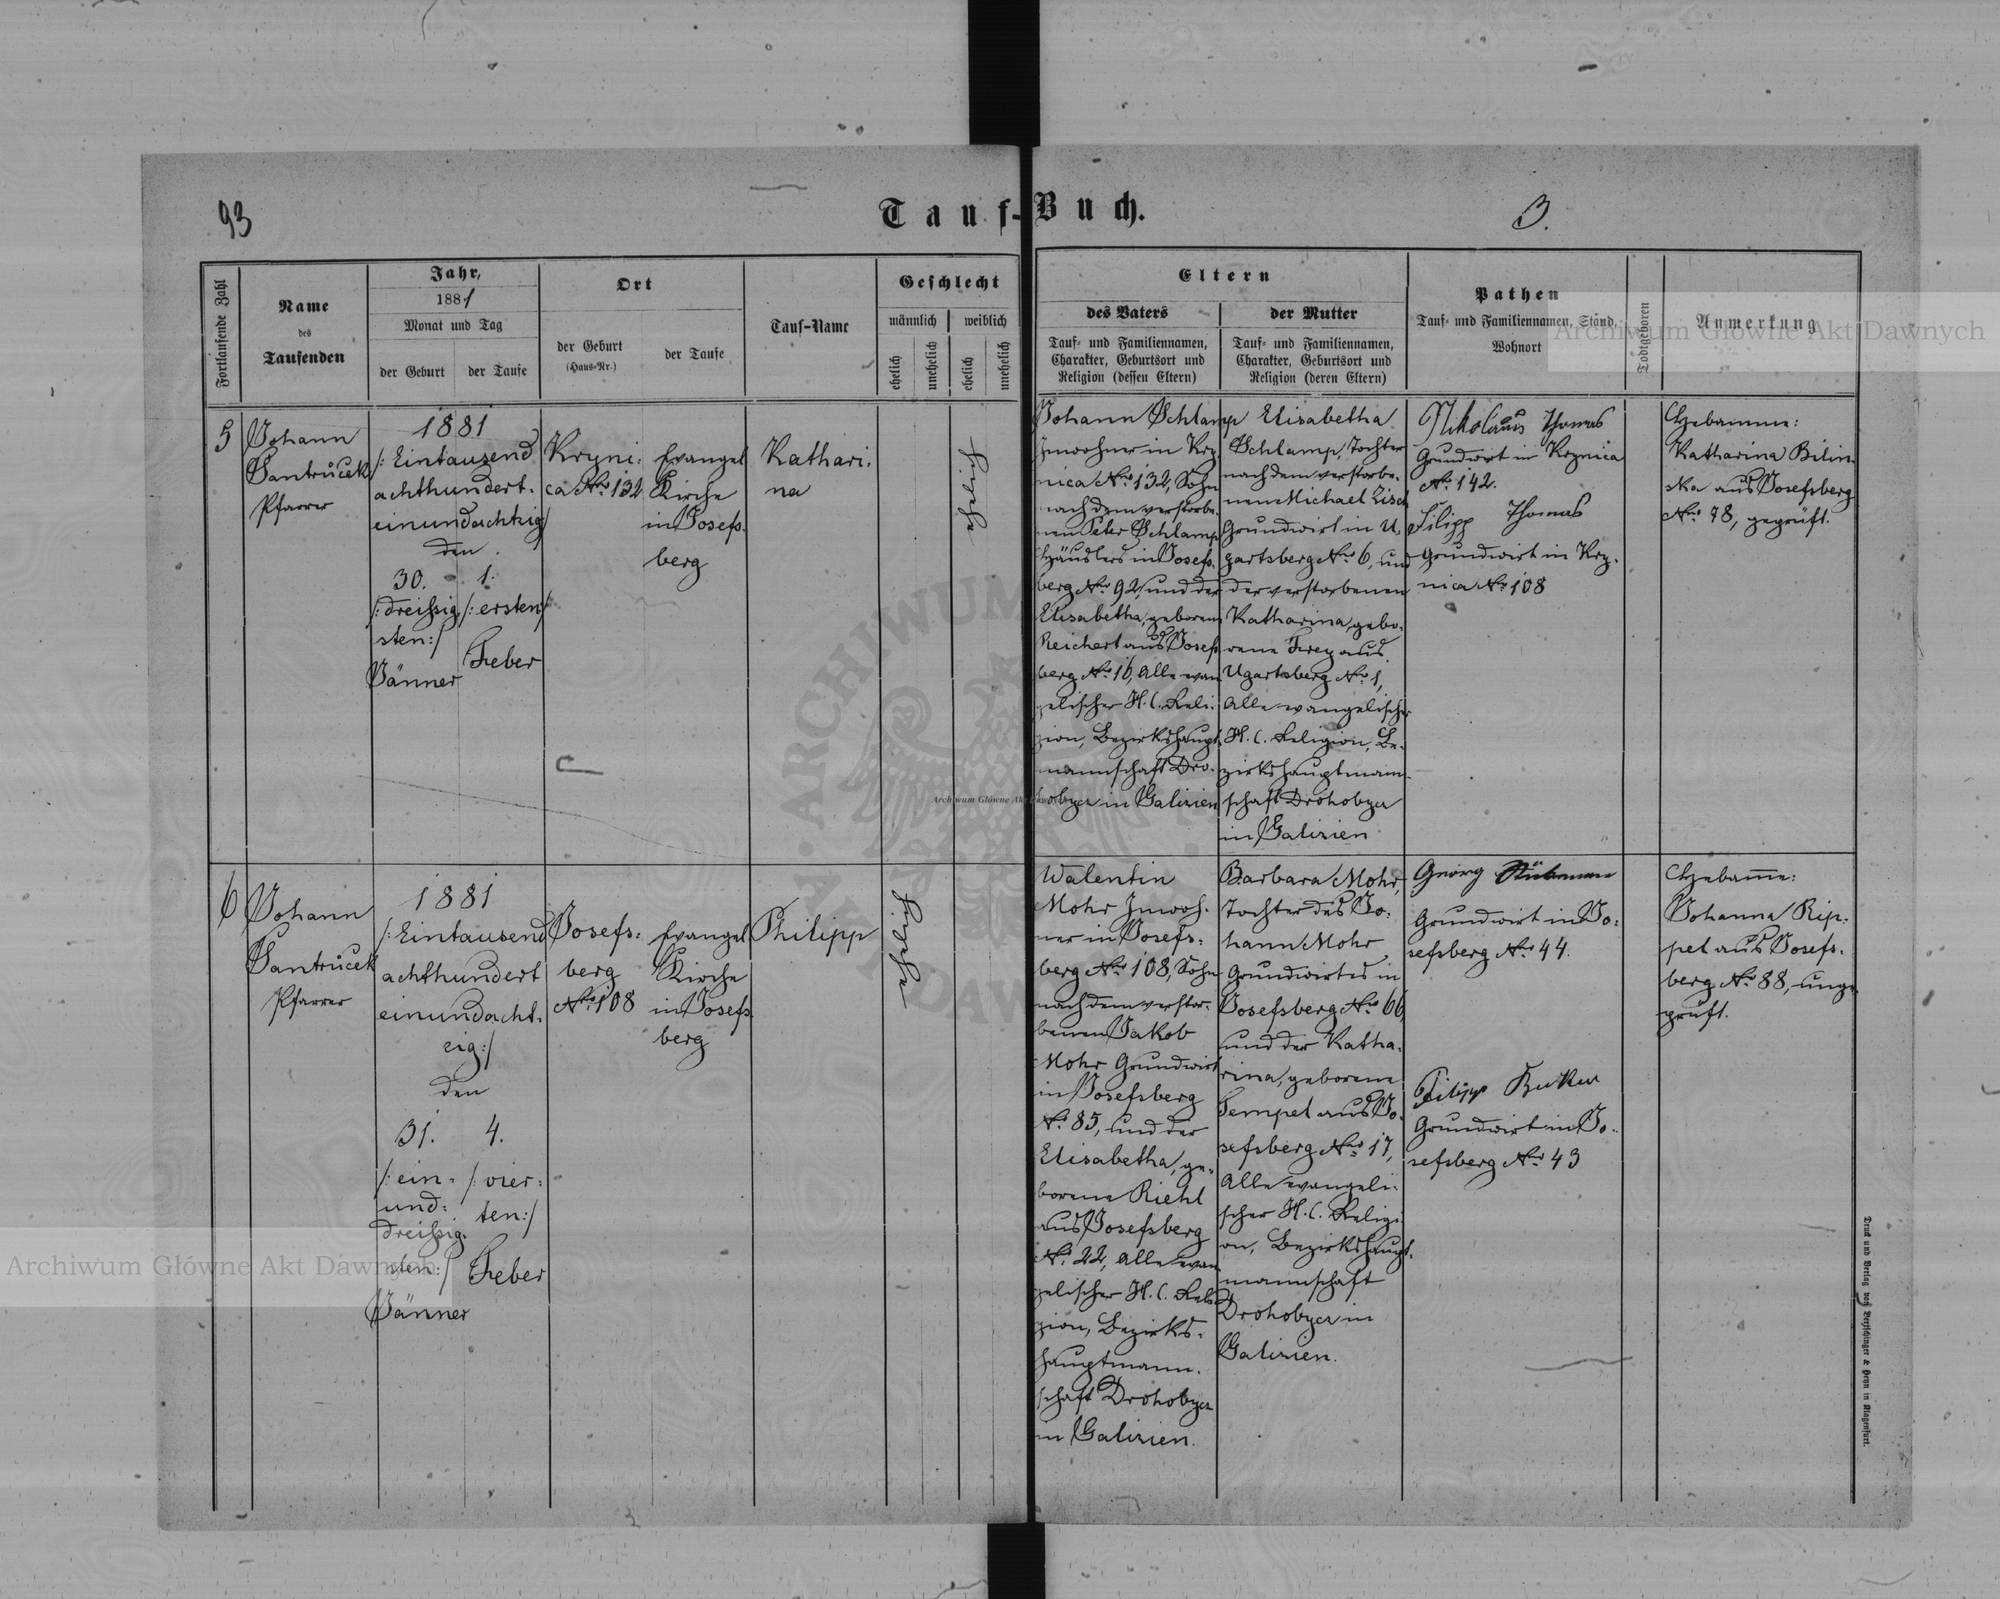 93
Tauf-Buch.
3.
Fortlaufende Zahl
Name
des
Taufenden
Jahr,
1881
Monat und Tag
der Geburt
der Taufe
Ort
der Geburt
(Haus-Nr.)
der Taufe
Tauf-Name
Geschlecht
männlich
weiblich
ehelich
unehelich
ehelich
unehelich
Eltern
des Vaters
Tauf- und Familiennamen,
Charakter, Geburtsort und
Religion (dessen Eltern)
der Mutter
Tauf- und Familiennamen,
Charakter, Geburtsort und
Religion (deren Eltern)
Pathen
Tauf- und Familiennamen, Stand,
Wohnort
Todtgeboren
Anmerkung
5
Johann
Santrůček
Pfarrer
1881
/: Eintausend
achthundert-
einundachtzig/
den
30.
/: dreißig
sten:/
Jänner
1.
/: ersten/
Feber
Kryni-
ca No 132
Evangel
Kirche
in Josefs-
berg
Kathari-
na
ehelich
Johann Schlamp
Inwohner in Kry
nica No 132, Sohn
nach dem verstorbe-
nen Peter Schlamp
Häuslers in Josefs-
berg No 92, und der
Elisabetha, geborene
Reichert aus Josefs
berg No 16, Alle evan
gelischer H. C. Reli-
gion, Bezirkshaupt
mannschaft Dro-
hobycz in Galizien
Elisabetha
Schlamp, Tochter
nach dem verstorbe-
nen Michael Lisch
Grundwirt in U-
gartsberg No 6, und
der verstorbenen
Katharina, gebo-
rene Frey aus
Ugartsberg No 1,
Alle evangelischer
H. C. Religion, Be-
zirkshauptmann-
schaft Drohobycz
in Galizien
Nikolaus Thomas
Grundwirt in Krynica
No 142.
Filipp Thomas
Grundwirt in Kry-
nica No 108
Hebamme:
Katharina Bilin-
ska aus Josefsberg
No 78, geprüft.
6
Johann
Santrůček
Pfarrer
1881
/: Eintausend
achthundert
einundacht-
zig:/
den
31.
/: ein-
und-
dreißig-
sten:/
Jänner
4.
/: vier-
ten:/
Feber
Josefs-
berg
No 108
Evangel
Kirche
in Josefs-
berg
Philipp
ehelich
Walentin
Mohr Inwoh-
ner in Josefs-
berg No 108, Sohn
nach dem verstor-
benen Jakob
Mohr Grundwirt
in Josefsberg
No 85, und der
Elisabetha, ge-
borene Riehl
aus Josefsberg
No 22, Alle evan
gelischer H. C. Reli
gion, Bezirks-
hauptmann-
schaft Drohobycz
in Galizien.
Barbara Mohr,
Tochter des Jo-
hann Mohr
Grundwirtes in
Josefsberg No 66,
und der Katha-
rina, geborene
Tempel aus Jo-
sefsberg No 17,
Alle evangeli-
scher H. C. Religi
on, Bezirkshaupt-
mannschaft
Drohobycz in
Galizien.
Georg
Grundwirt in Jo-
sefsberg No 44.
Filipp
Grundwirt in Jo-
sefsberg No 43
Hebamme:
Johanna Rip-
pel aus Josefs-
berg No 88, unge-
prüft.
Druck und Verlag von Bertschinger & Heyn in Klagenfurt.
Archiwum Główne Akt Dawnych
Archiwum Główne Akt Dawnych
Archiwum Główne Akt Dawnych